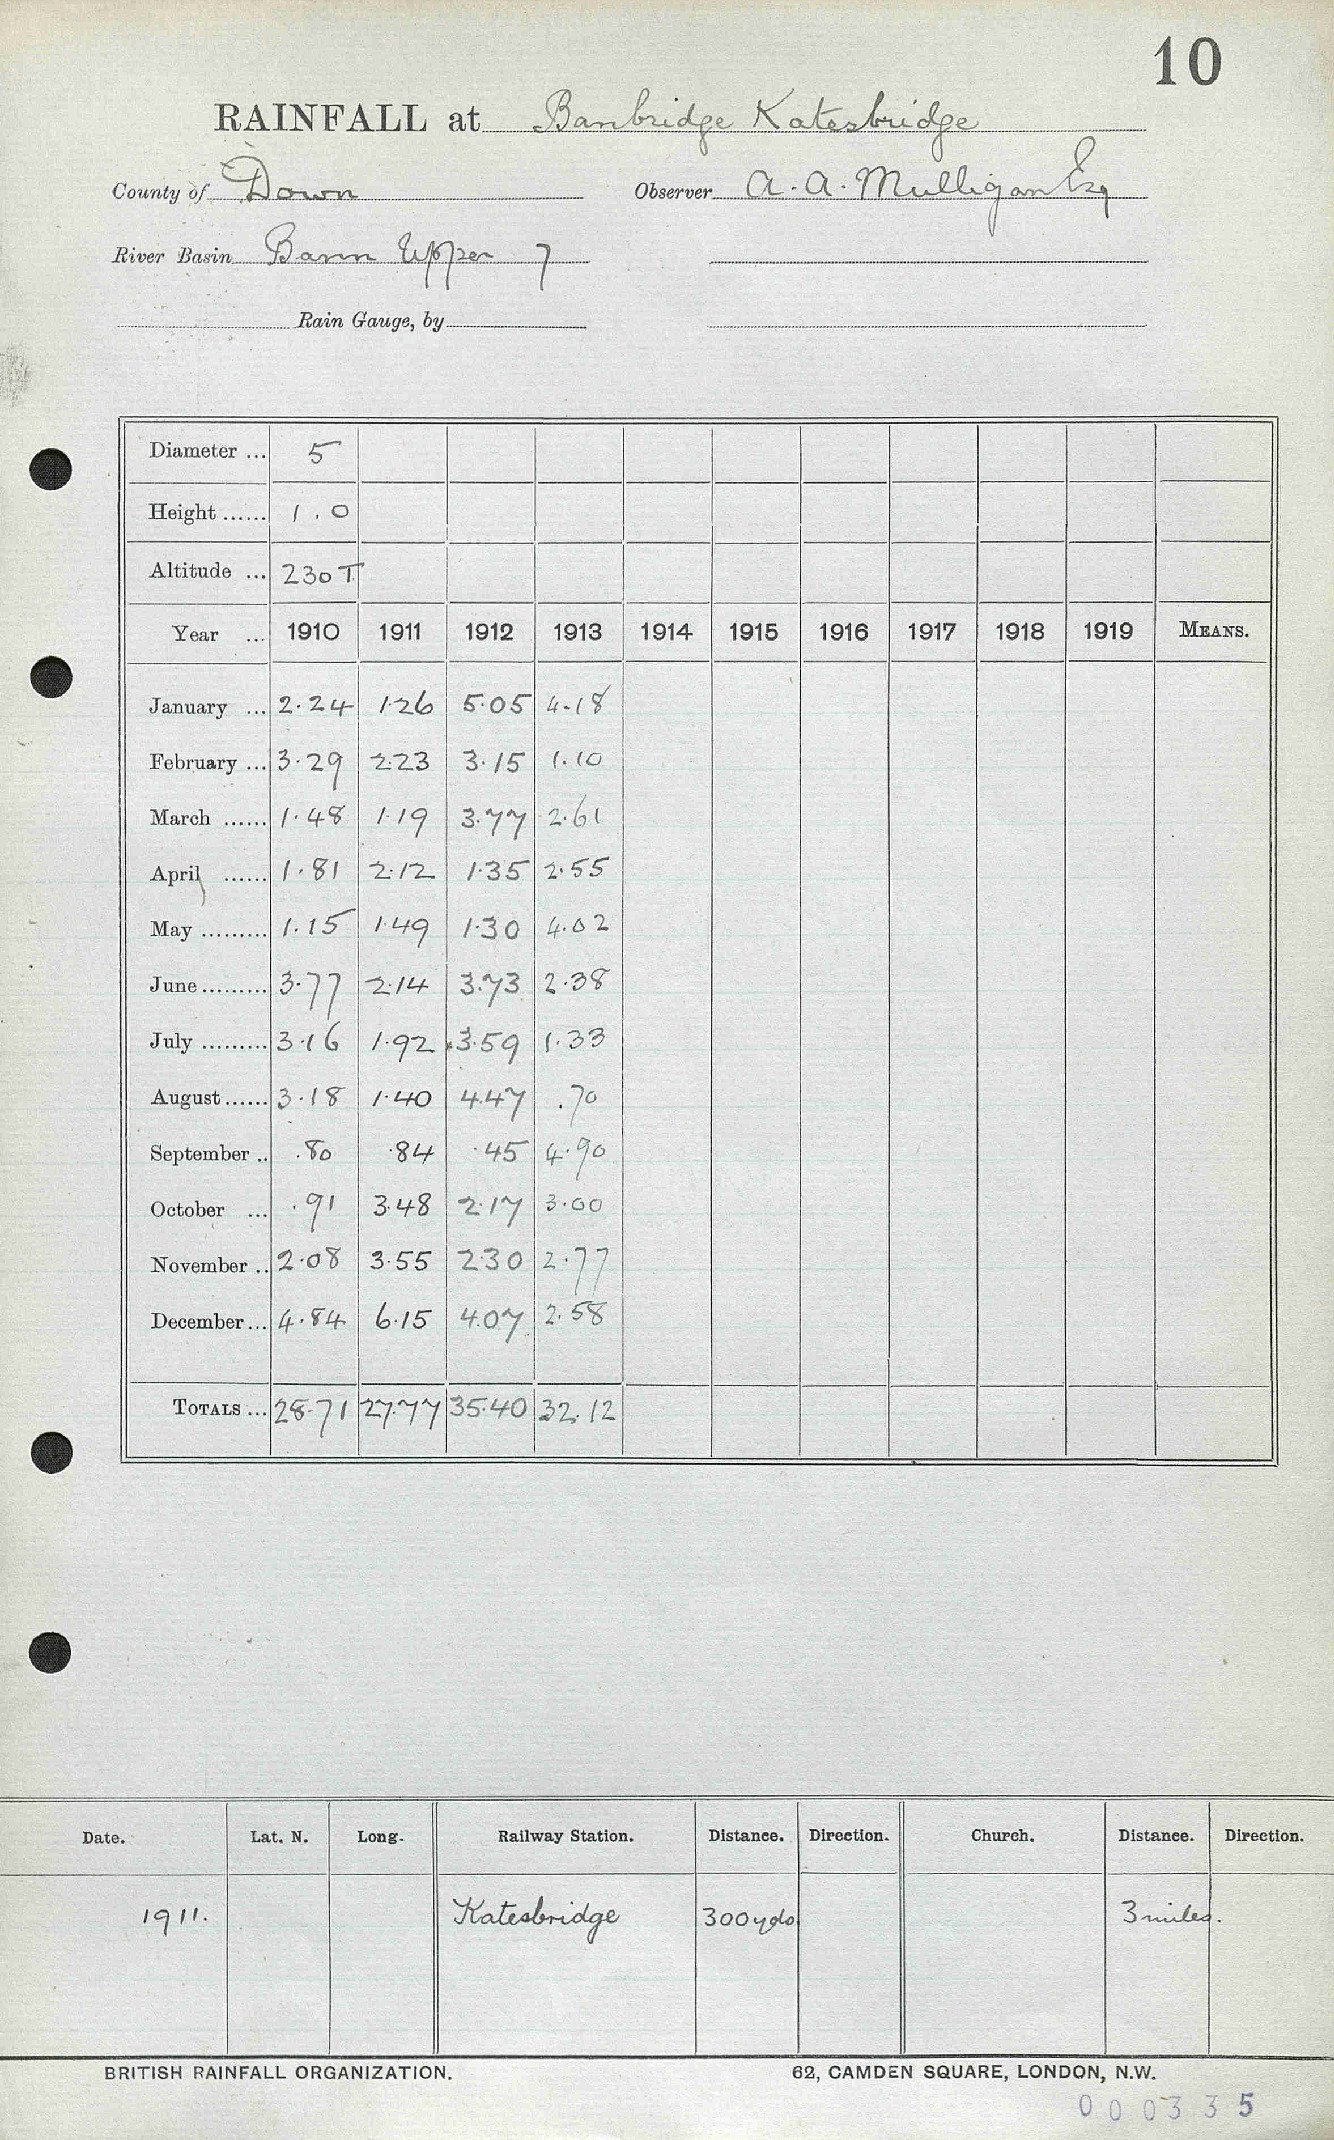 10
RAINFALL at Banbridge Katesbridge
County of Down Observer A. A. Mulligan Esq
River Basin Bann Upper 7
Rain Gauge, by
Diameter ... 5
Height ...... 1.0
Altitude ... 230 T
Year ... 1910 1911 1912 1913 1914 1915 1916 1917 1918 1919 MEANS.
January ... 2.24 1.26 5.05 4.18
February ... 3.29 2.23 3.15 1.10
March ...... 1.48 1.19 3.77 2.61
April ...... 1.81 2.12 1.35 2.55
May ......... 1.15 1.49 1.30 4.02
June ......... 3.77 2.14 3.73 2.38
July ......... 3.16 1.92 3.59 1.33
August ...... 3.18 1.40 4.47 .70
September .. .80 .84 .45 4.90
October ... .91 3.48 2.17 3.00
November .. 2.08 3.55 2.30 2.77
December ... 4.84 6.15 4.07 2.58
TOTALS ... 28.71 27.77 35.40 32.12
Date. Lat. N. Long. Railway Station. Distance. Direction. Church. Distance. Direction.
1911. Katesbridge 300 yds 3 miles.
BRITISH RAINFALL ORGANIZATION. 62, CAMDEN SQUARE, LONDON, N.W.
000335